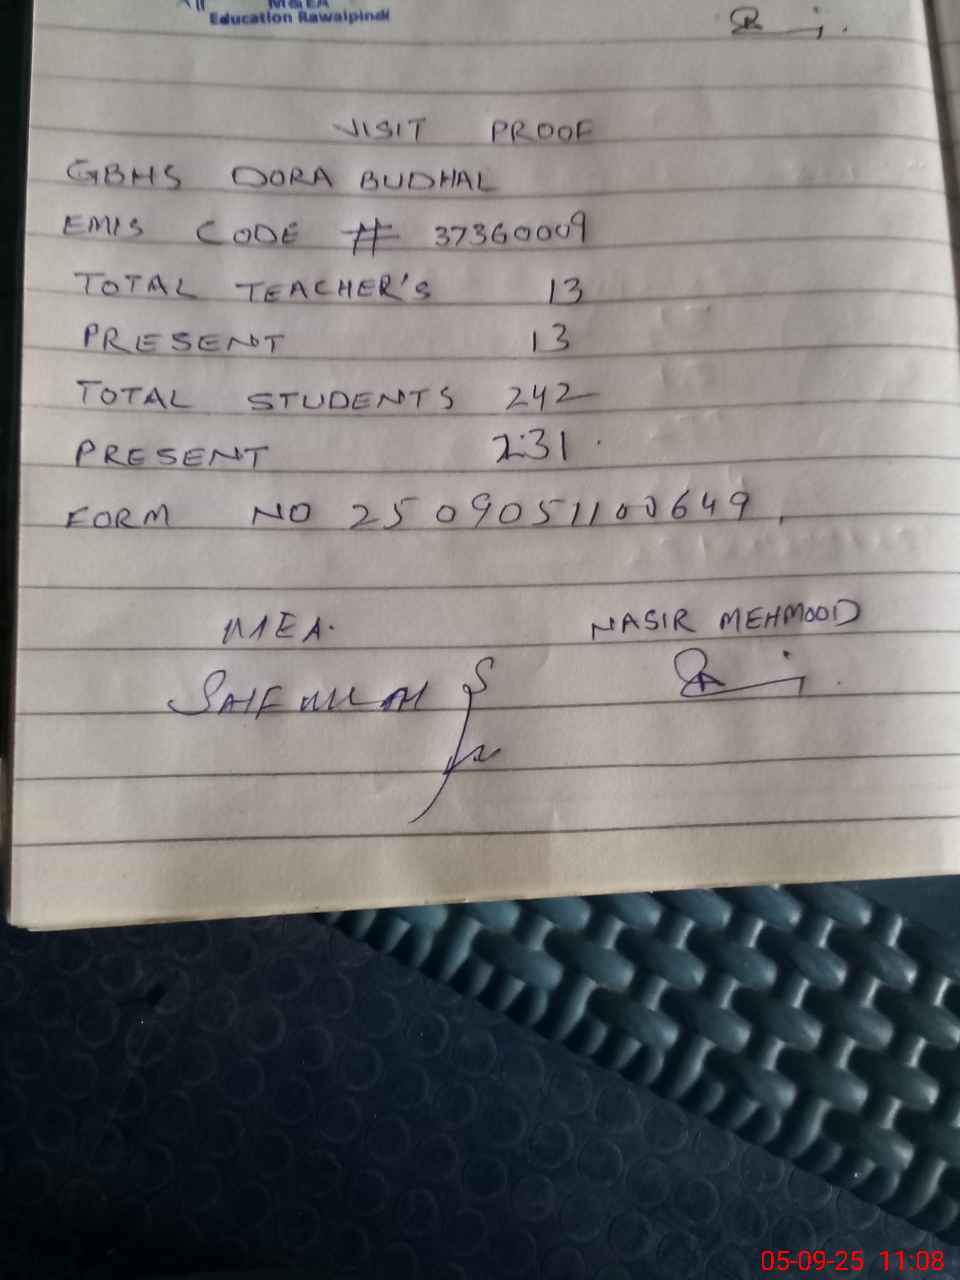 M&EA
Education Rawalpindi
VISIT PROOF
GBHS DORA BUDHAL
EMIS CODE # 37360009
TOTAL TEACHER'S 13
PRESENT 13
TOTAL STUDENTS 242
PRESENT 231
FORM NO 2509051100649
MEA. NASIR MEHMOOD
SAIFULLAH
05-09-25 11:08